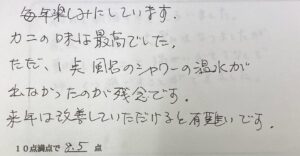 毎年楽しみにしています。
カニの味は最高でした。
ただ、1点風呂のシャワーの温水が
出なかったのが残念です。
来年は改善していただけると有難いです。
10点満点で 9.5 点